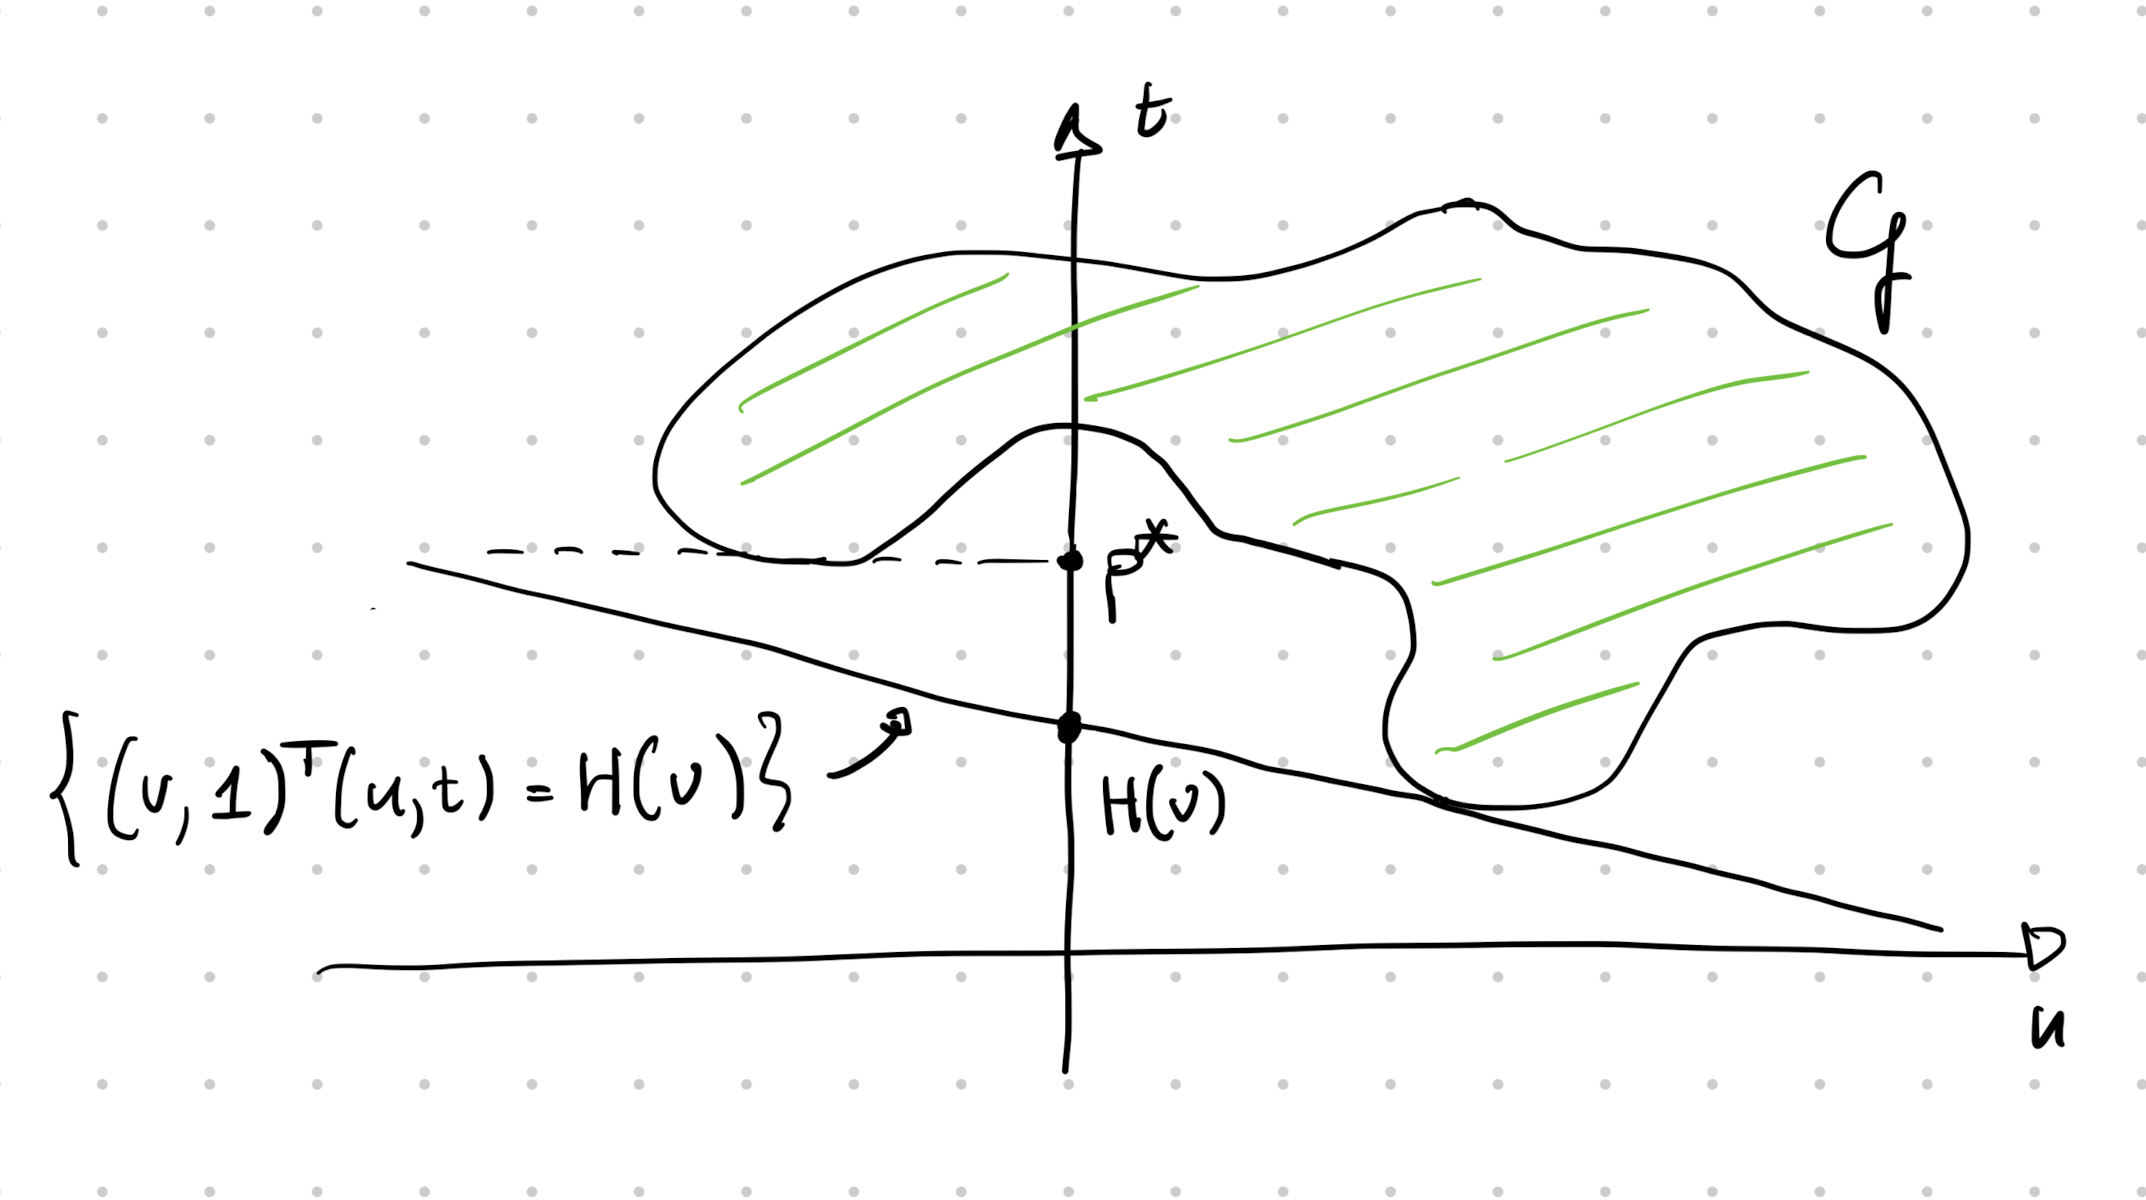 t
G
p*
{(v,1)ᵀ(u,t) = H(v)}
H(v)
u